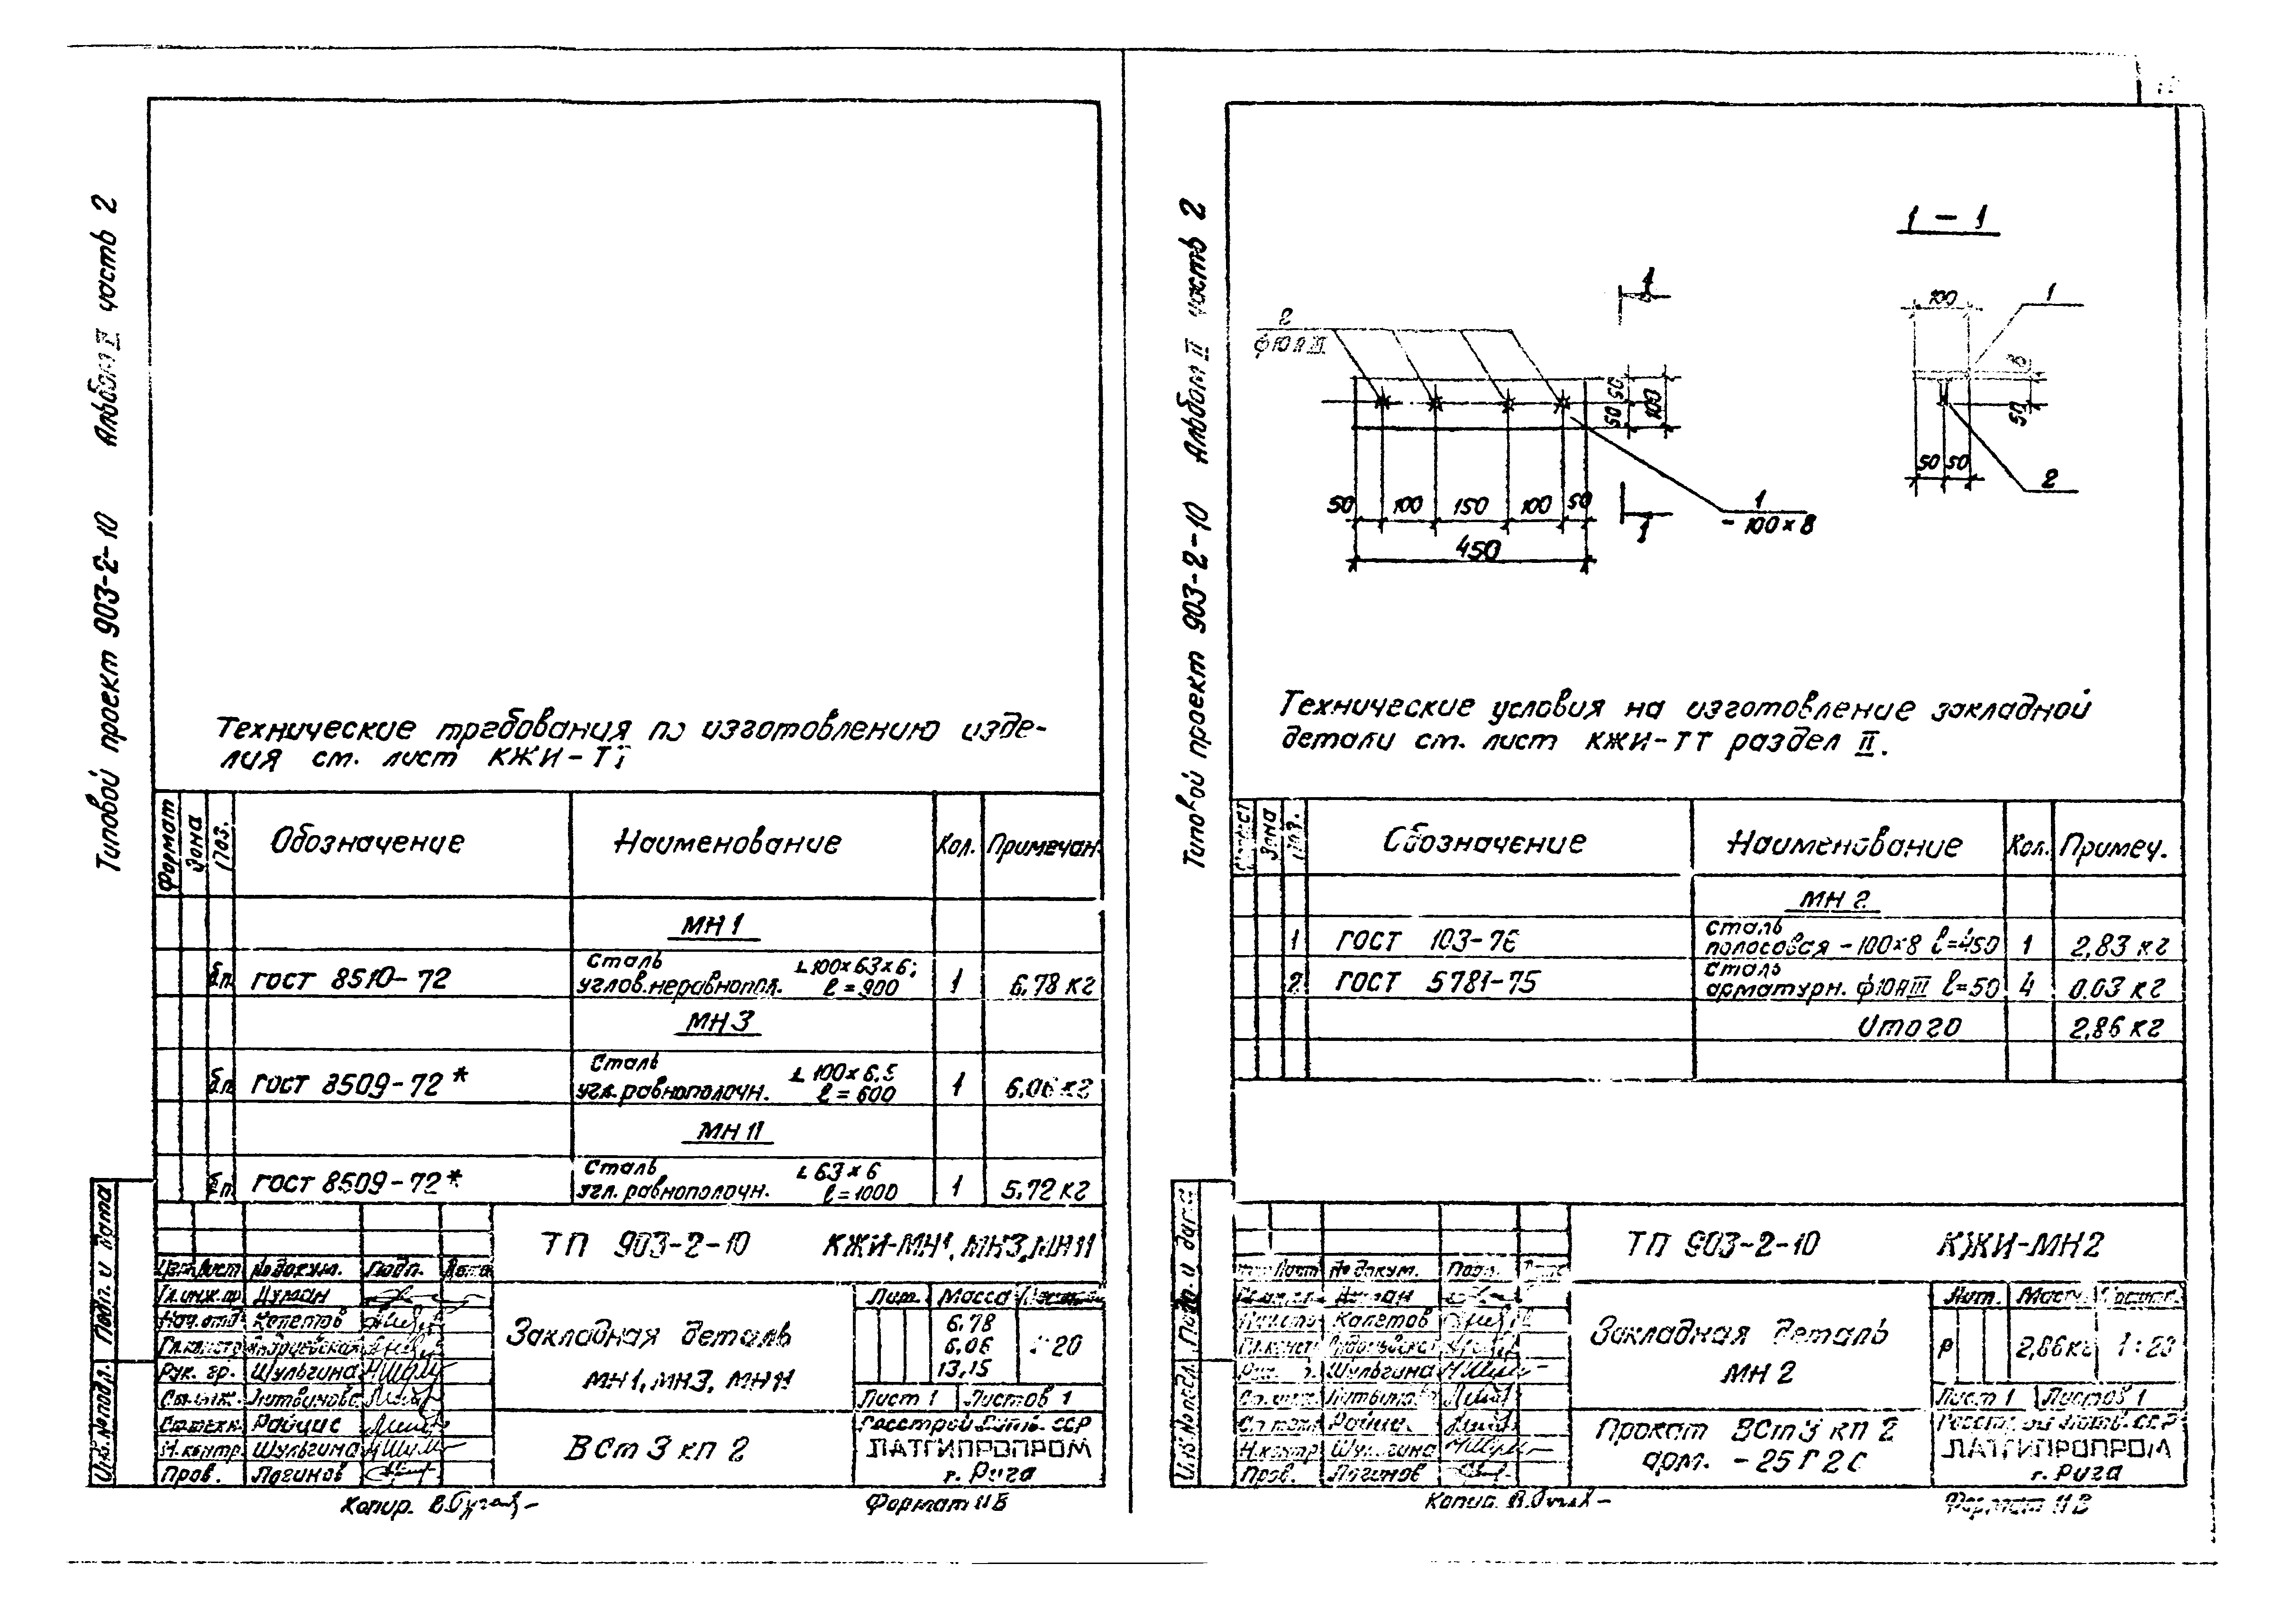 Типовой проект 903-2-10 Альбом II часть 2
Технические требования по изготовлению изде-
лия см. лист КЖИ-ТТ
Формат Зона Поз. Обозначение Наименование Кол. Примечан.
МН 1
б.п. ГОСТ 8510-72 Сталь углов.неравнопол. L100×63×6; ℓ=900 1 6,78 кг
МН 3
б.п. ГОСТ 8509-72* Сталь угл.равнополочн. L 100×6.5 ℓ=600 1 6.06 кг
МН 11
б.п. ГОСТ 8509-72* Сталь угл.равнополочн. L 63×6 ℓ=1000 1 5.72 кг
ТП 903-2-10 КЖИ-МН1, МН3, МН11
Изм. Лист № докум. Подп. Дата
Гл.инж.пр. Думан
Нач.отд. Капетов
Гл.констр.
Рук. гр. Шульгина
Ст.инж. Литвинова
Ст.техн. Райцис
Н.контр. Шульгина
Пров. Логинов
Закладная деталь
МН1, МН3, МН11
ВСт 3 кп 2
Лит. Масса Масштаб
6.78
6.06
13,15
1:20
Лист 1 Листов 1
Госстрой Латв. ССР
ЛАТГИПРОПРОМ
г. Рига
Подп. и дата
Инв.№подл.
Копир.
Формат 11В
Типовой проект 903-2-10 Альбом II часть 2
1 - 1
1
2
ф10АIII
50 50
100
50 100 150 100 50
450
1
1
- 100×8
100
1
8
50
50 50
2
Технические условия на изготовление закладной
детали см. лист КЖИ-ТТ раздел II.
Формат Зона Поз. Обозначение Наименование Кол. Примеч.
МН 2
1 ГОСТ 103-76 Сталь полосовая -100×8 ℓ=450 1 2,83 кг
2 ГОСТ 5781-75 Сталь арматурн. ф10АIII ℓ=50 4 0.03 кг
Итого 2,86 кг
ТП 903-2-10 КЖИ-МН2
Лист № докум. Подп.
Думан
Капетов
Шульгина
Литвинова
Ст.техн. Райцис
Н.контр. Шульгина
Пров. Логинов
Закладная деталь
МН 2
Прокат ВСт3 кп 2
арм. - 25Г2С
Лит. Масса Масшт.
Р 2,86кг 1:20
Лист 1 Листов 1
Госстрой Латв. ССР
ЛАТГИПРОПРОМ
г. Рига
Подп. и дата
Инв.№подл.
Копир.
Формат 11В